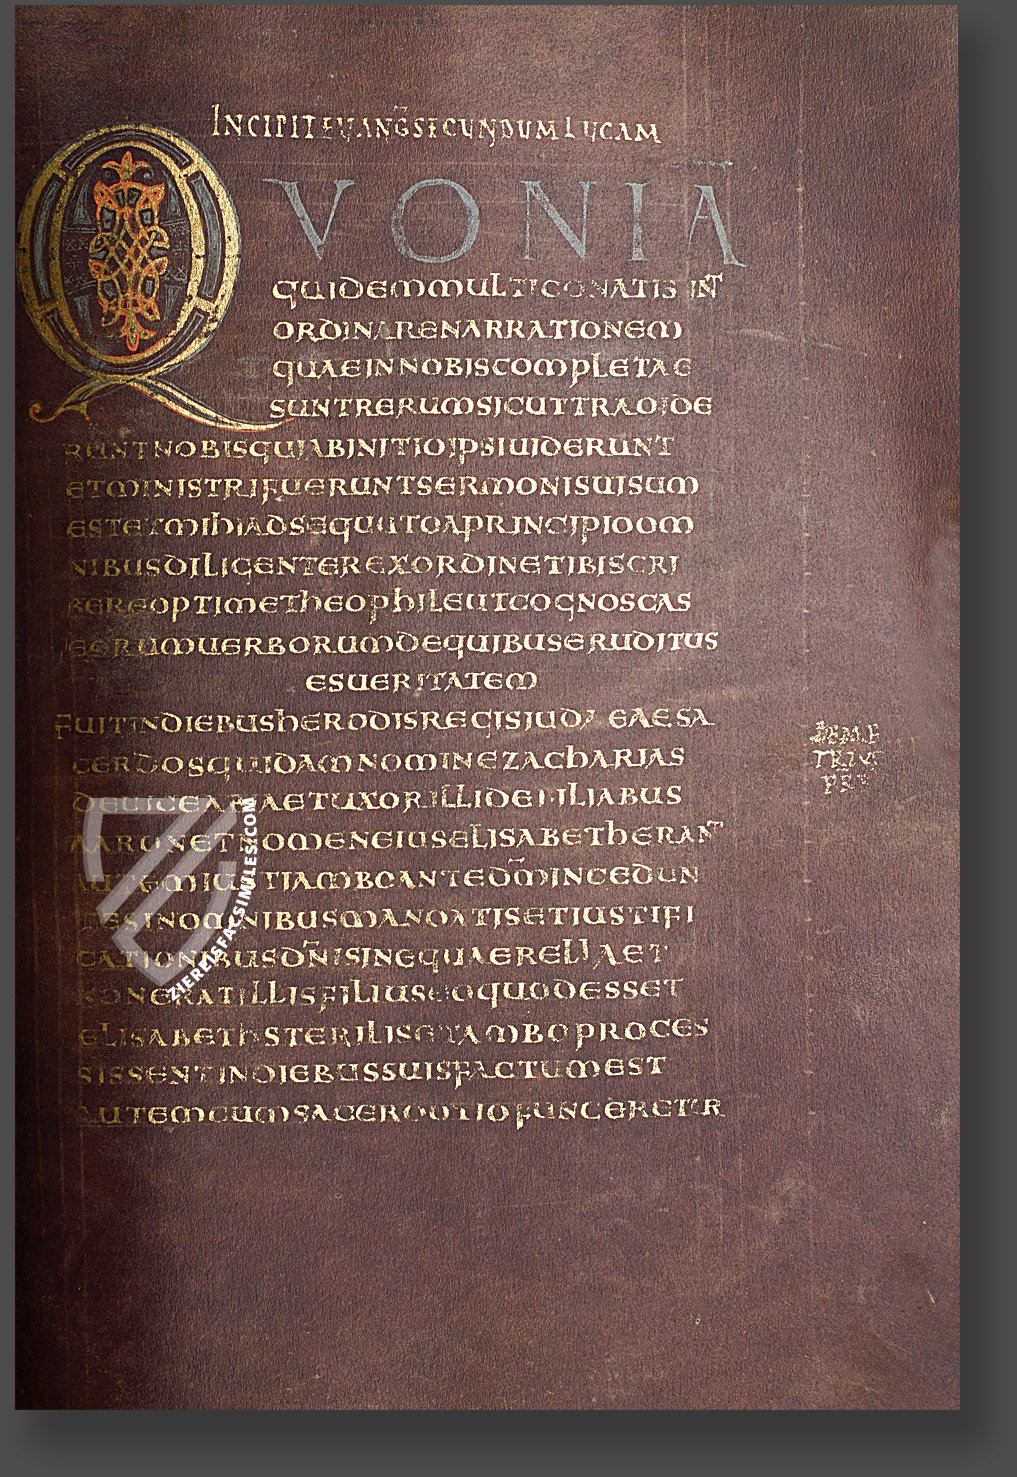 INCIPIT EVANG̅ SECUNDUM LUCAM
QVONIA̅
QUIDEM MULTI CONATI S IN̅T
ORDINARE NARRATIONEM
QUAE IN NOBIS COMPLETAE
SUNT RERUM SICUT TRADIDE
RUNT NOBIS QUI AB INITIO IPSI UIDERUNT
ET MINISTRI FUERUNT SERMONIS UISUM
EST ET MIHI ADSEQUUTO A PRINCIPIO OM
NIBUS DILIGENTER EX ORDINE TIBI SCRI
BERE OPTIME THEOPHILE UT COGNOSCAS
EORUM UERBORUM DE QUIBUS ERUDITUS
ES UERITATEM
FUIT IN DIEBUS HERODIS REGIS IUDAEAE SA
CERDOS QUIDAM NOMINE ZACHARIAS
DE UICE ABIA ET UXOR ILLI DE FILIABUS
AARON ET NOMEN EIUS ELISABETH ERAN̅T
AUTEM IUSTI AMBO ANTE DM̅ INCEDUN
TES IN OMNIBUS MANDATIS ET IUSTIFI
CATIONIBUS DN̅I SINE QUAERELLA ET
NON ERAT ILLIS FILIUS EO QUOD ESSET
ELISABETH STERILIS ET AMBO PROCES
SISSENT IN DIEBUS SUIS FACTUM EST
AUTEM CUM SACERDOTIO FUNGERETUR
DEME
TRIUS
PR̅B
ZIEREISFACSIMILES.COM